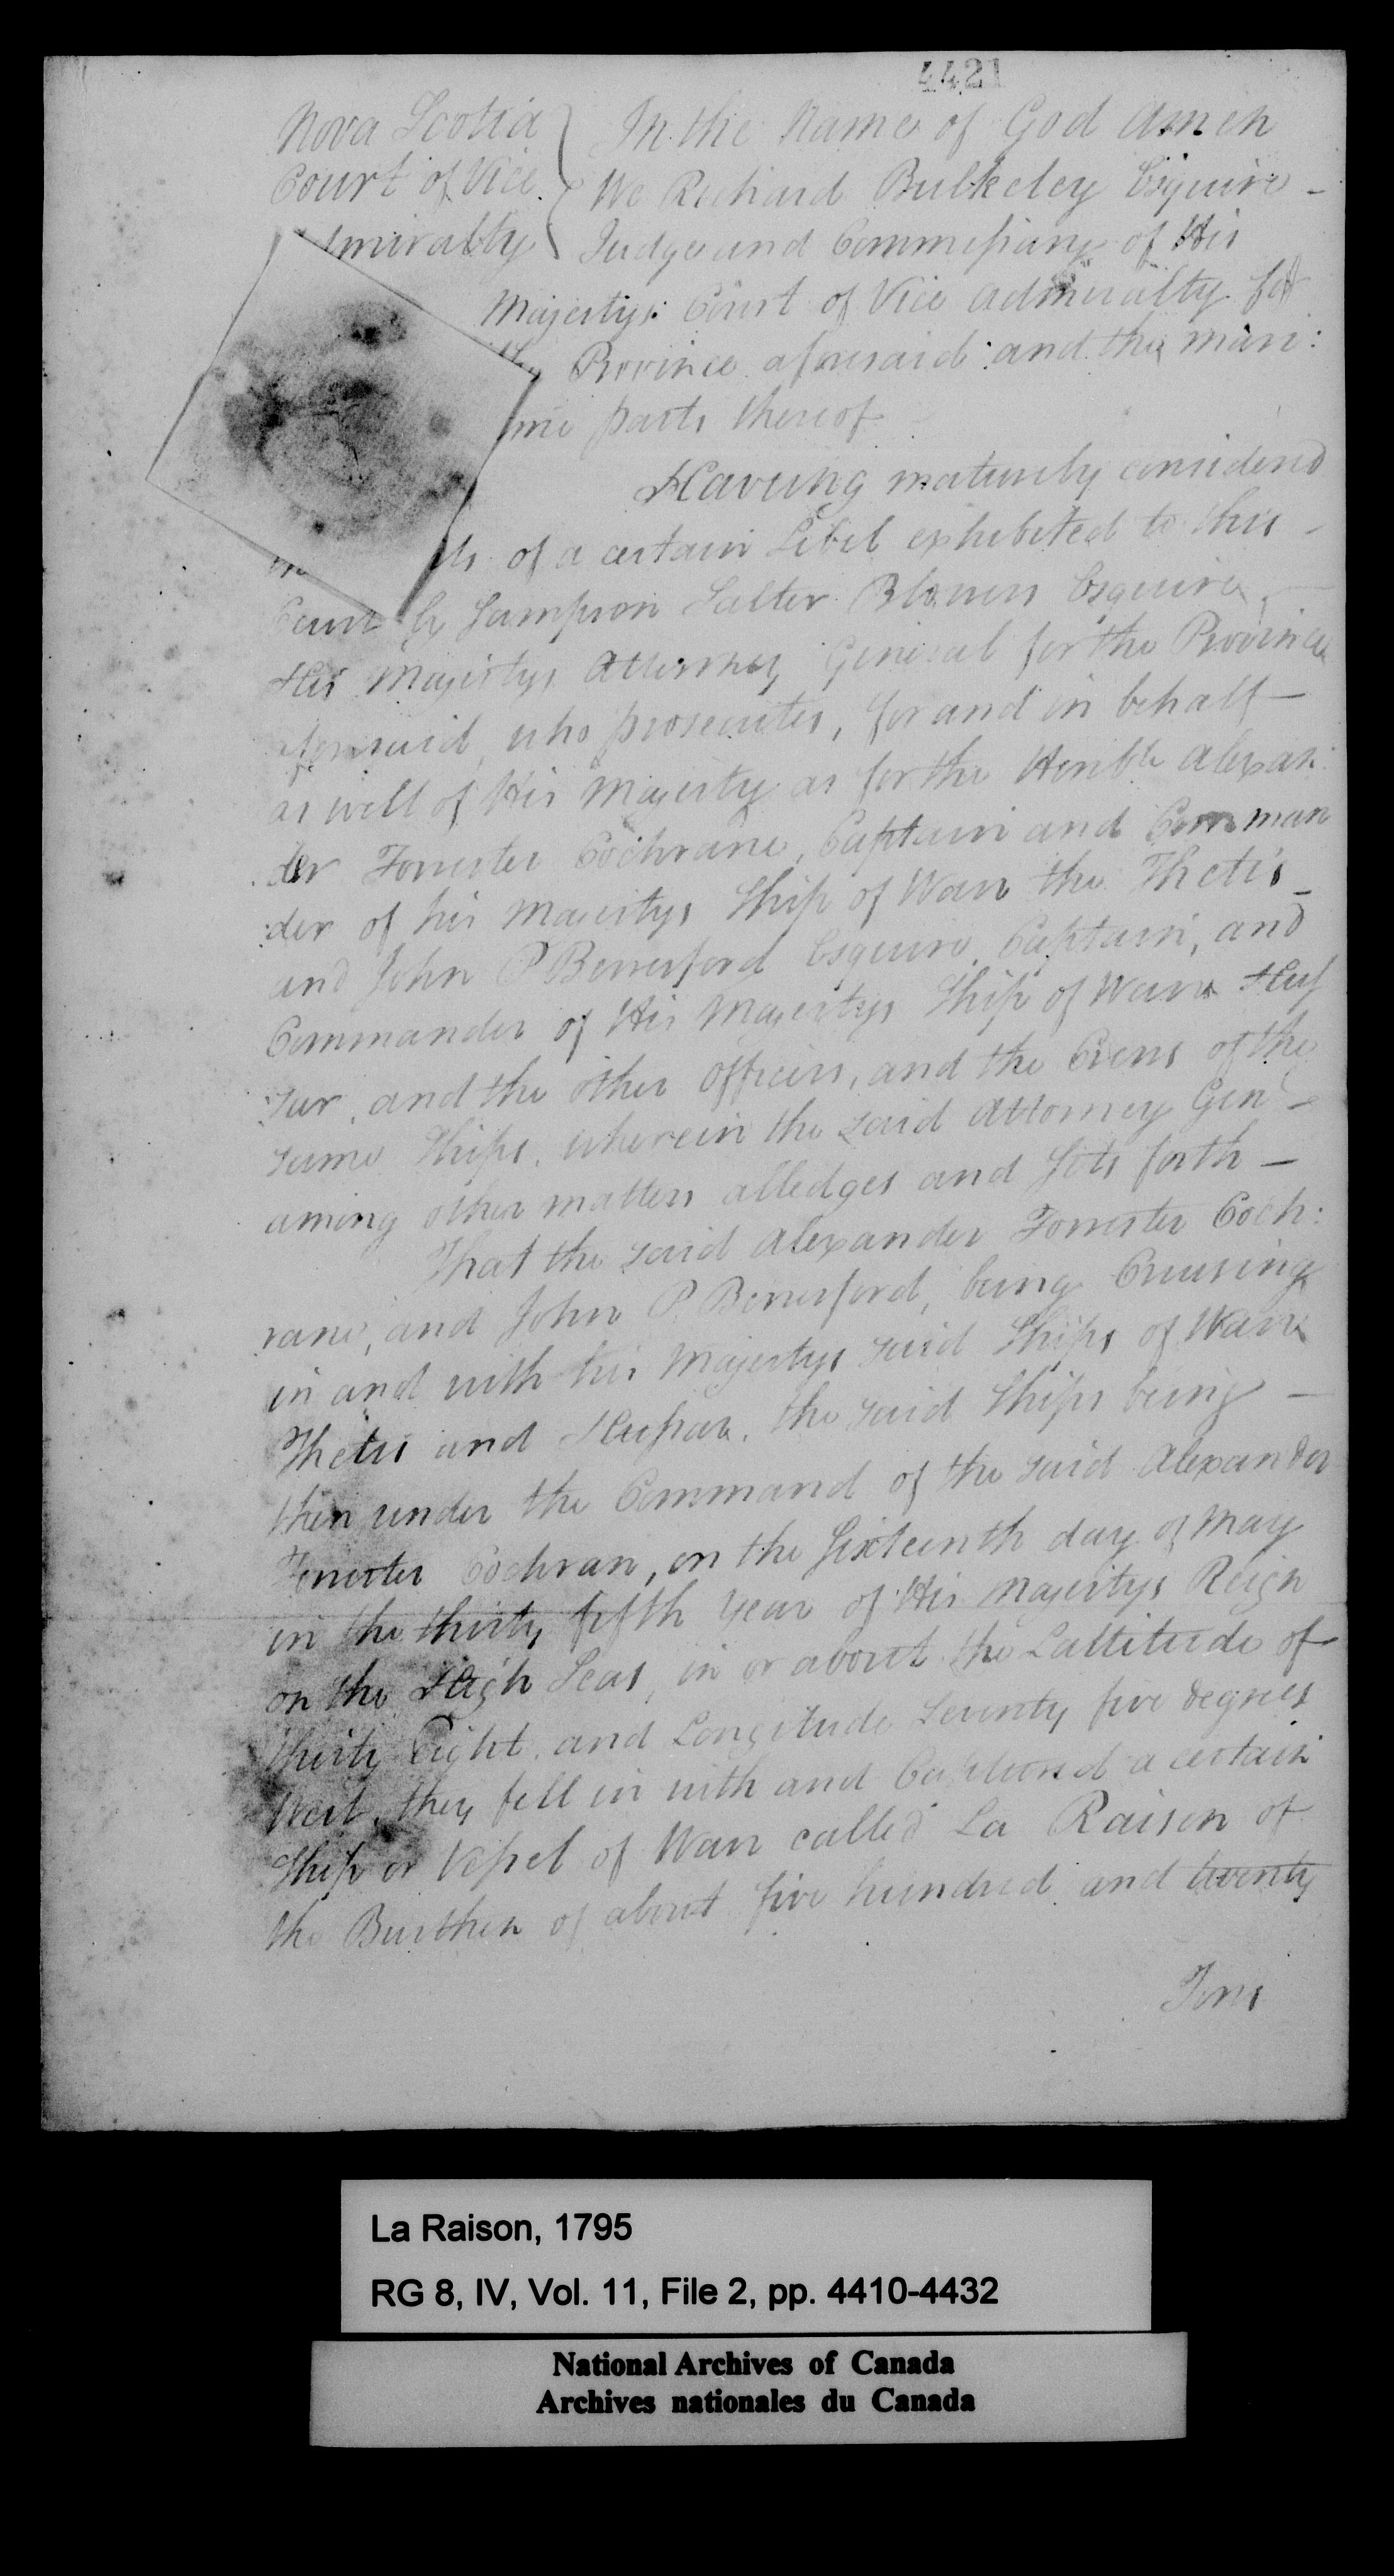 4421
Nova Scotia
Court of Vice
miralty
In the Name of God Amen
We Richard Bulkeley Esquire -
Judge and Commissary of His
Majestys Court of Vice Admiralty for
the Province aforesaid and the mari:
ime parts thereof
Having maturely considered
ts of a certain Libel exhibeted to this -
Court by Sampson Salter Blowers Esquire, -
His Majestys Attorney General for the Province
aforesaid, who prosecutes, for and in behalf -
as well of His Majesty as for the Honble Alexan:
der Forrester Cochrane, Captain and Comman
:der of his Majestys Ship of Warr the Thetis -
and John P Berresford Esquire, Captain, and
Commander of His Majestys Ship of Warr Hus
:sar, and the other Officers, and the Crews of the
same Ships, wherein the said Attorney Genl -
among other matters alledges and Sets forth -
That the said Alexander Forrester Coch:
rane, and John P. Berresford, being Cruising
in and with his Majestys said Ships of Warr
Thetis and Hussar, the said Ships being -
then under the Command of the said Alexander
Forrester Cochran, on the Sixteenth day of May
in the thirty fifth Year of His Majestys Reign
on the High Seas, in or about the Lattitude of
thirty Eight, and Longitude Seventy five degrees
West, they fell in with and Captured a certain
Ship or Vessel of Warr called La Raison of
the Burthen of about five hundred and twenty
Tons
La Raison, 1795
RG 8, IV, Vol. 11, File 2, pp. 4410-4432
National Archives of Canada
Archives nationales du Canada